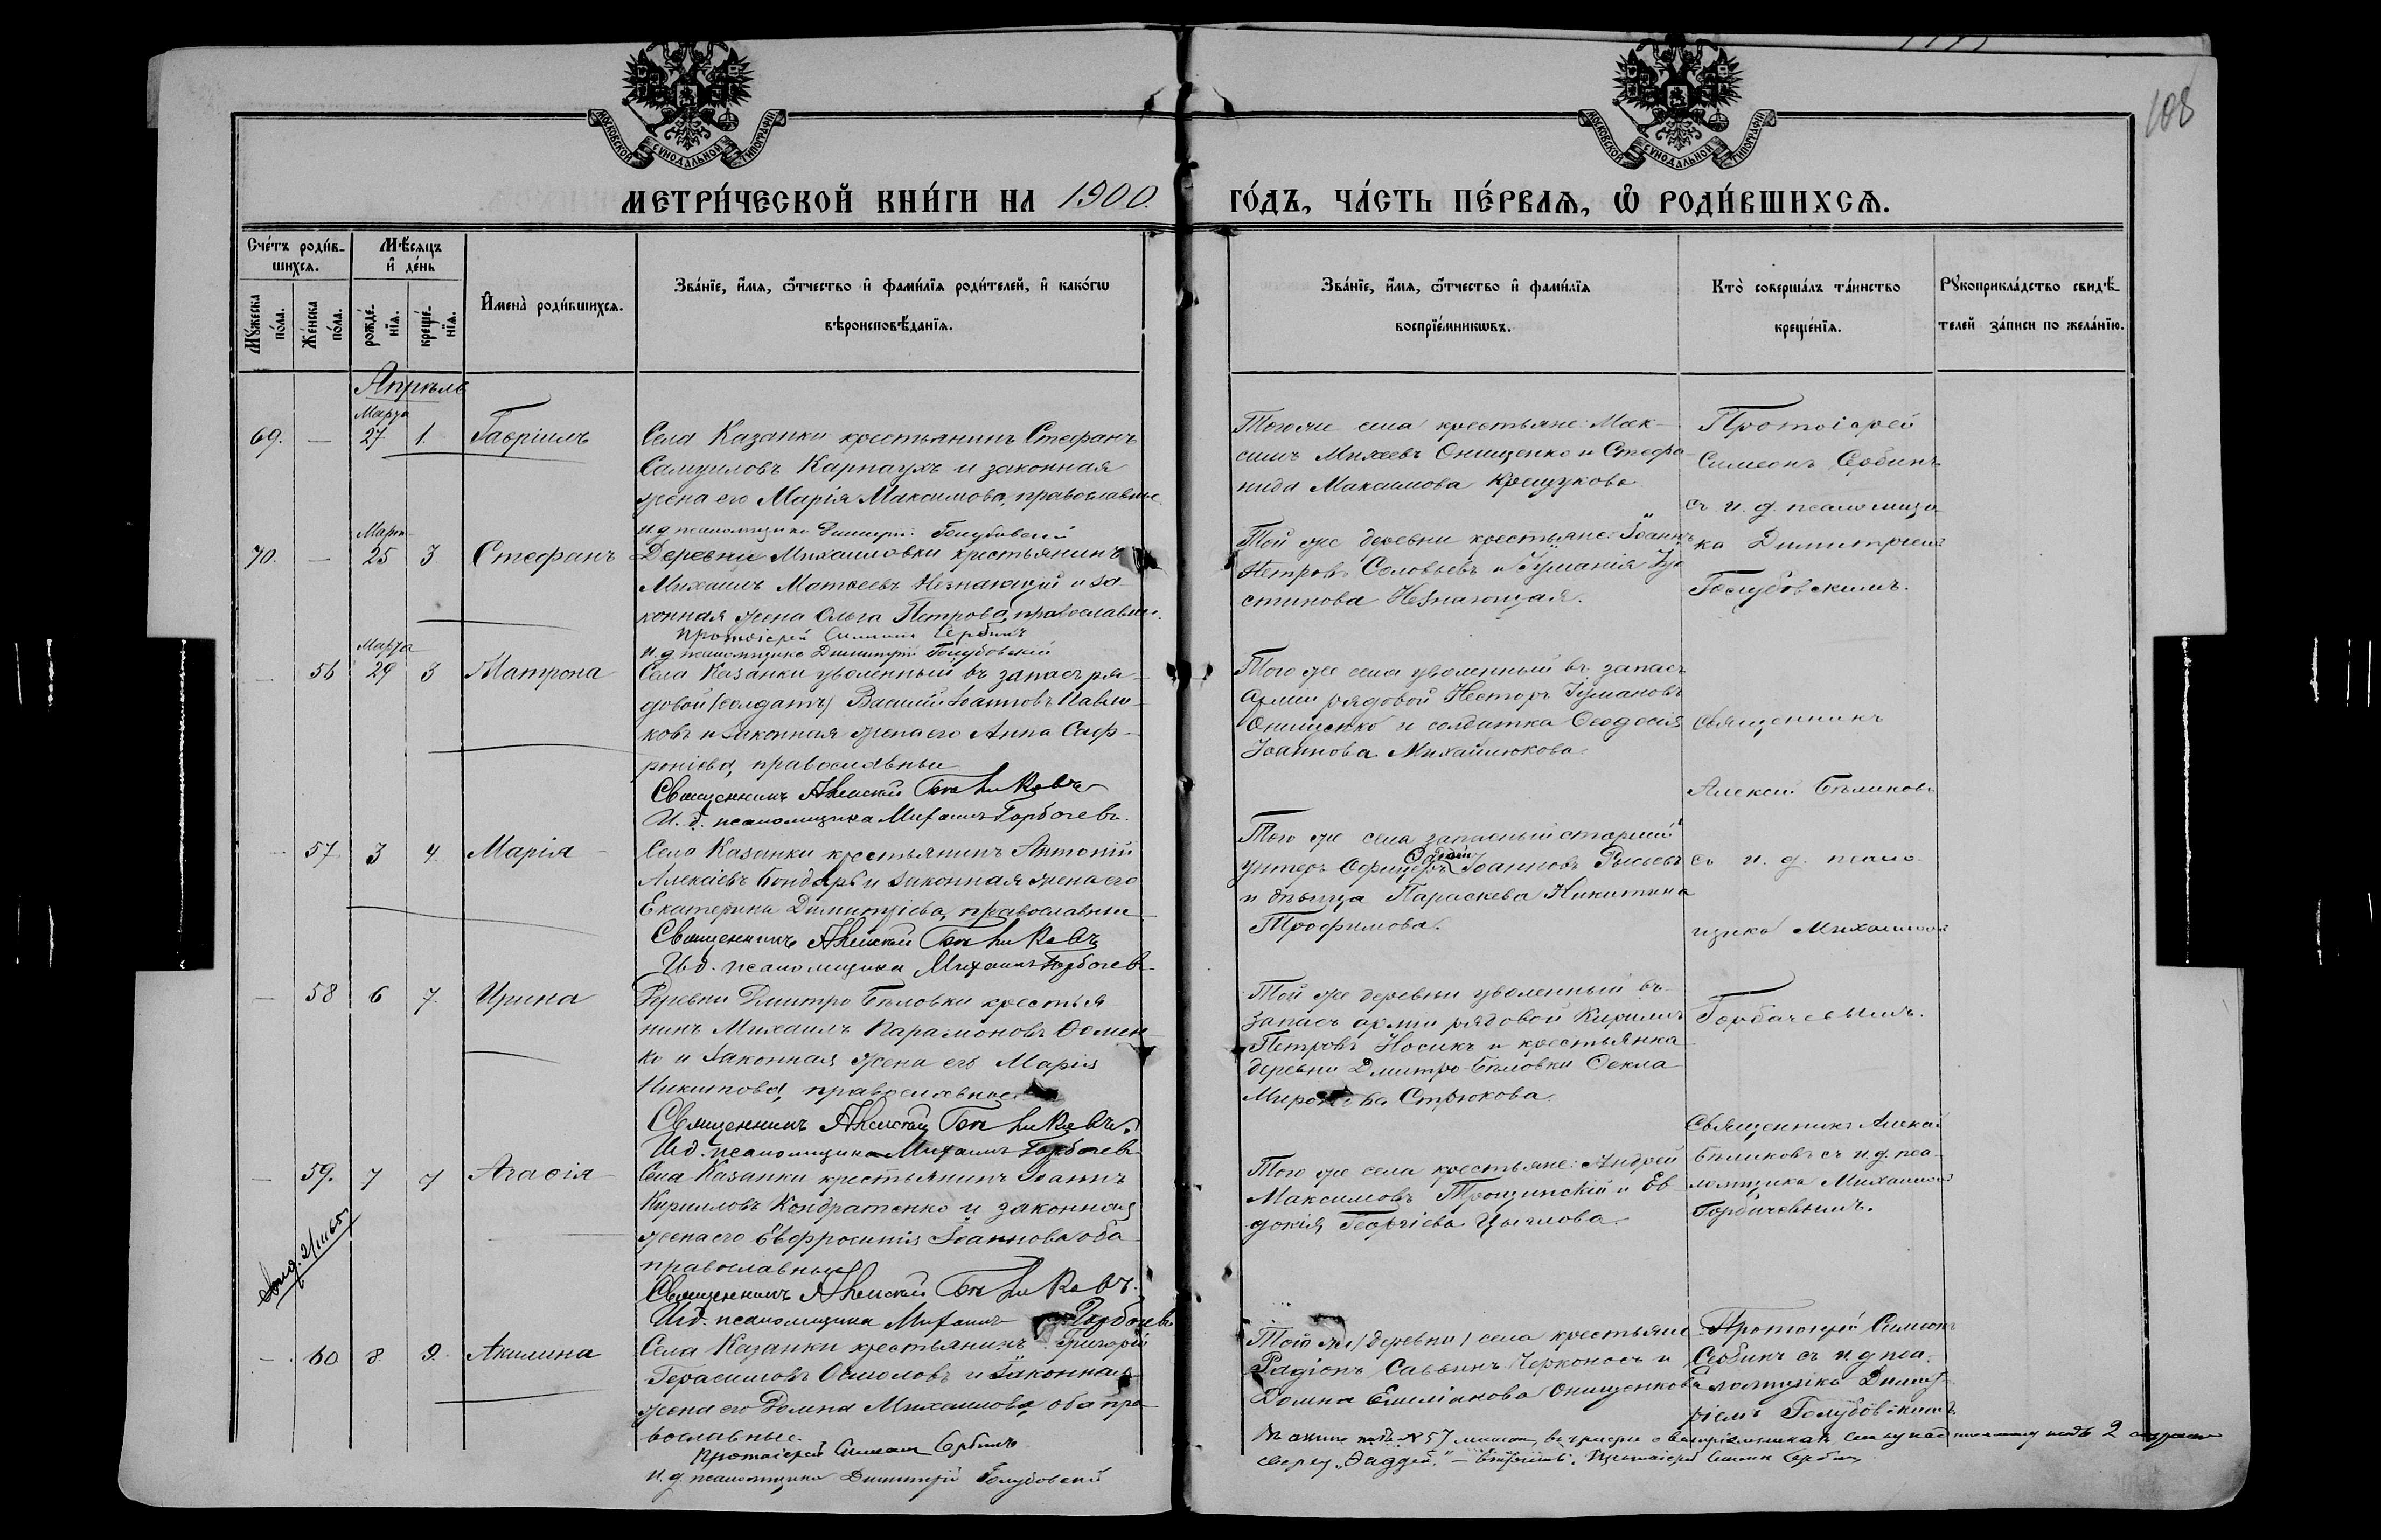 108
МОСКОВСКОЙ СУНОДАЛЬНОЙ ТИПОГРАФІИ
МОСКОВСКОЙ СУНОДАЛЬНОЙ ТИПОГРАФІИ
МЕТРИ́ЧЕСКОЙ КНИ́ГИ НА 1900. ГО́ДЪ, ЧА́СТЬ ПЕ́РВАѦ, Ѡ҆ РОДИ́ВШИХСѦ.
Сче́тъ роди́в-
шихсѧ.
Мꙋ́жеска по́ла.
Же́нска по́ла.
Мѣ́сѧцъ
и҆ де́нь
рожде́-
нїѧ.
креще́-
нїѧ.
И҆мена̀ роди́вшихсѧ.
Зва́нїе, и҆́мѧ, ѻ҆́тчество и҆ фами́лїѧ роди́телей, и҆ како́гѡ
вѣроисповѣ́данїѧ.
Зва́нїе, и҆́мѧ, ѻ҆́тчество и҆ фами́лїѧ
воспрїе́мникѡвъ.
Кто̀ соверша́лъ та́инство
креще́нїѧ.
Рꙋкоприкла́дство свидѣ́-
телей за́писи по жела́нїю.
Апрѣль
Марта
69. — 27. 1. Гавріилъ
Села Казанки крестьянинъ Стефанъ
Самуиловъ Карнаухъ и законная
жена его Марія Максимова, православные
и. д. псаломщика Димитрій Голубовскій
Тогоже села крестьяне: Мак-
симъ Михеевъ Онищенко и Стефа-
нида Максимова
Протоіерей
Симеонъ Сербинъ
съ и. д. псаломщи-
ка Димитріемъ
Голубовскимъ.
Марта
70. — 25 3 Стефанъ
Деревни Михаиловки крестьянинъ
Михаилъ Матвеевъ Незнающій и за-
конная жена Ольга Петрова, православные.
Протоіерей Симеонъ Сербинъ
и. д. псаломщика Димитрій Голубовскій
Той же деревни крестьяне: Іоаннъ
Петровъ Соловьевъ и Іуліанія Іу-
стинова Незнающая.
Марта
— 56 29 3 Матрона
Села Казанки уволенный въ запасъ ря-
довой (солдатъ) Василій Іоанновъ Павлю-
ковъ и законная жена его Анна Саф-
роніева, православные
Священникъ Алексій Бѣликовъ
И. д. псаломщика Михаилъ Горбачевъ.
Того же села уволенный въ запасъ
арміи рядовой Несторъ
Онищенко и солдатка Ѳеодосія
Іоаннова Михайлюкова.
Священникъ
Алексій Бѣликовъ
съ и. д. псалом-
щика Михаиломъ
Горбачевымъ.
— 57 3 4 Марія
Села Казанки крестьянинъ Антоній
Алексіевъ Бондарь и законная жена его
Екатерина Димитріева, православные
Священникъ Алексій Бѣликовъ
И. д. псаломщика Михаилъ Горбачевъ
Того же села запасный старшій
унтеръ офицеръ Фаддей Іоанновъ
и дѣвица Параскева Никитина
Трофимова.
— 58 6 7. Ирина
Деревни Дмитро Бѣловки крестья-
нинъ Михаилъ Парамоновъ Ѳомен-
ко и законная жена его Марія
православные.
Священникъ Алексій Бѣликовъ.
И. д. псаломщика Михаилъ Горбачевъ
Той же деревни уволенный въ
запасъ арміи рядовой Кириллъ
Петровъ Носикъ и крестьянка
деревни Дмитро-Бѣловки Ѳекла
Стрюкова.
— 59. 7 7 Агаѳія
Села Казанки крестьянинъ Іоаннъ
Кирилловъ Кондратенко и законная
жена его Евфросинія Іоаннова оба
православные
Священникъ Алексій Бѣликовъ.
И. д. псаломщика Михаилъ Горбачевъ
Того же села крестьяне: Андрей
Максимовъ Трощинскій и Ев-
докія Георгіева
Священникъ Алексій
Бѣликовъ съ и. д. пса-
ломщика Михаиломъ
Горбачевымъ.
— 60 8. 9. Акилина
Села Казанки крестьянинъ Григорій
Герасимовъ Осмоловъ и законная
жена его Домна Михаилова, оба пра-
вославные.
Протоіерей Симеонъ Сербинъ
и. д. псаломщика Димитрій Голубовскій
Той же (деревни) села крестьяне
Родіонъ Саввинъ Черконосъ и
Домна Емеліанова Онищенкова
Протоіерей Симеонъ
Сербинъ съ и. д. пса-
ломщика Димит-
ріемъ Голубовскимъ
№ 57
сверху „Фаддей." — Протоіерей Симеонъ Сербинъ